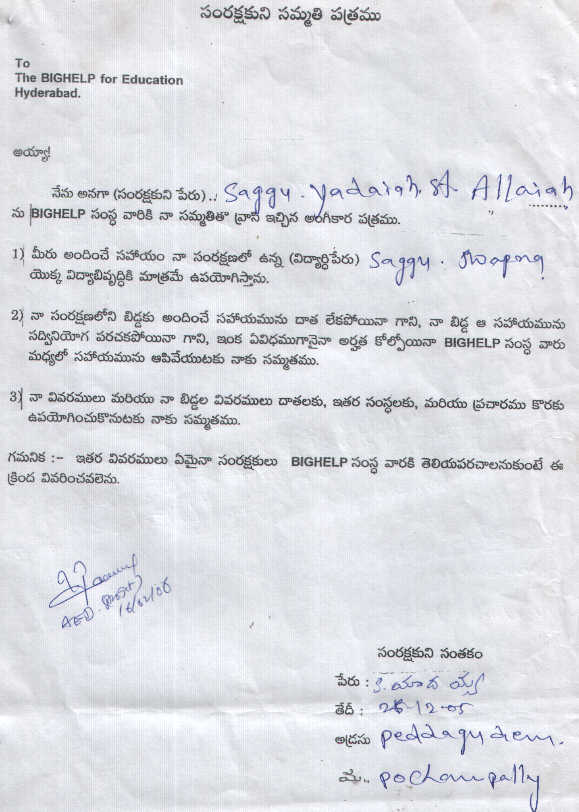 సంరక్షకుని సమ్మతి పత్రము
To
The BIGHELP for Education
Hyderabad.
అయ్యా!
నేను అనగా (సంరక్షకుని పేరు).. Saggu. Yadaiah. S/o Allaiah
ను BIGHELP సంస్థ వారికి నా సమ్మతితో వ్రాసి ఇచ్చిన అంగీకార పత్రము.
1) మీరు అందించే సహాయం నా సంరక్షణలో ఉన్న (విద్యార్థిపేరు) Saggu. Swapna
యొక్క విద్యాభివృద్ధికి మాత్రమే ఉపయోగిస్తాను.
2) నా సంరక్షణలోని బిడ్డకు అందించే సహాయమును దాత లేకపోయినా గాని, నా బిడ్డ ఆ సహాయమును
సద్వినియోగ పరచకపోయినా గాని, ఇంక ఏవిధముగానైనా అర్హత కోల్పోయినా BIGHELP సంస్థ వారు
మధ్యలో సహాయమును ఆపివేయుటకు నాకు సమ్మతము.
3) నా వివరములు మరియు నా బిడ్డల వివరములు దాతలకు, ఇతర సంస్థలకు, మరియు ప్రచారము కొరకు
ఉపయోగించుకొనుటకు నాకు సమ్మతము.
గమనిక :- ఇతర వివరములు ఏమైనా సంరక్షకులు BIGHELP సంస్థ వారకి తెలియపరచాలనుకుంటే ఈ
క్రింద వివరించవలెను.
సంరక్షకుని సంతకం
పేరు : S. యాదయ్య
తేదీ : 26-12-05
అడ్రసు peddagudem.
మం., pochampally